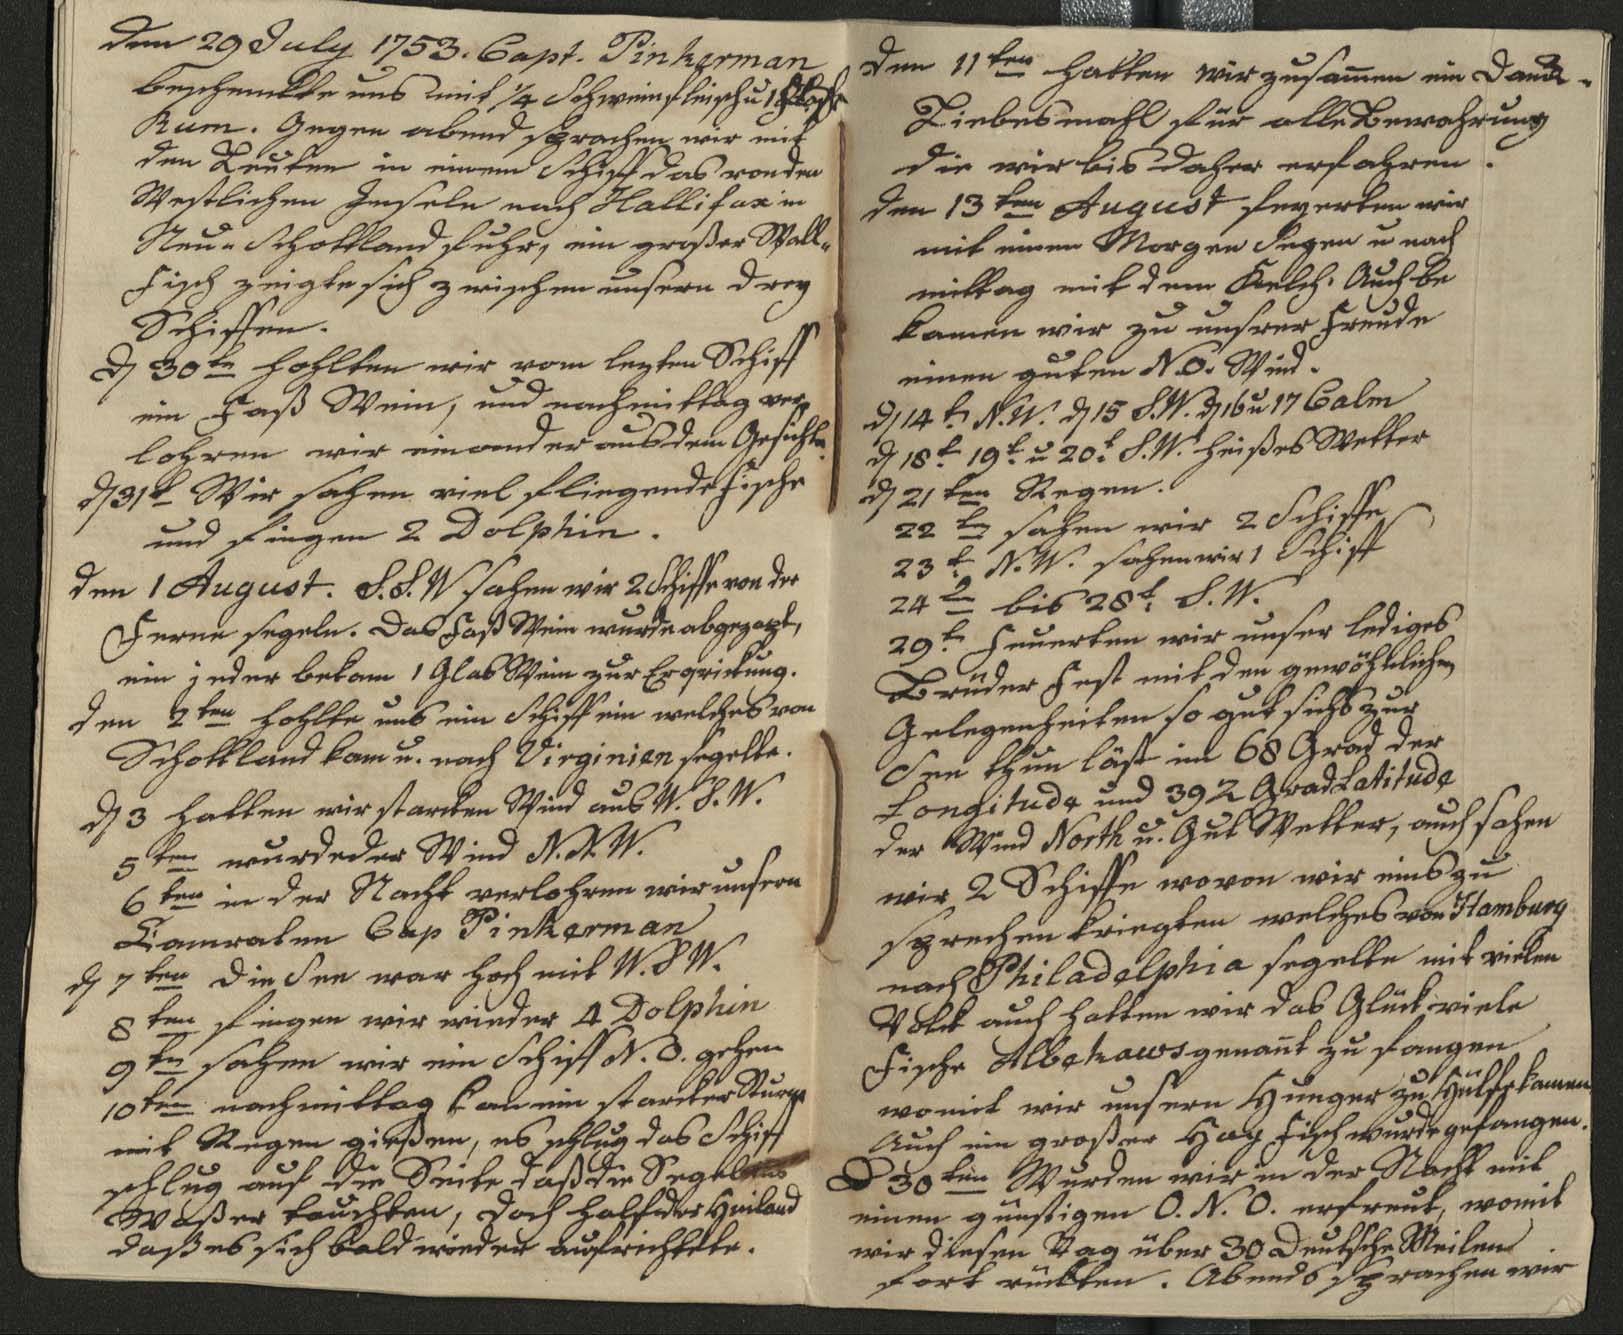 den 29 July 1753. Capt. Pinkerman
beschenckte uns mit 1/4 Schweinfleisch u 1
Rum. Gegen abend sprachen wir mit
den Leuten in einem Schiff das von den
Westlichen Inseln nach Hallifax in
Neu-Schottland fuhr, ein großer Wall-
Fisch zeigte sich zwischen unsern drey
Schiffen.
d 30te hohlten wir vom lezten Schiff
ein Faß Wein, und nachmittag ver-
lohren wir einander aus dem Gesichte.
d 31t Wir sahen viel fliegende Fische
und fingen 2 Dolphin.
den 1 August. S.S.W sahen wir 2 Schiffe von der
Ferne segeln. Das Faß Wein wurde abgezapt,
ein jeder bekam 1 Glas Wein zur Erqvickung.
den 2ten hohlte uns ein Schiff ein welches von
Schottland kam u. nach Virginien segelte.
d 3 hatten wir starcken Wind aus W.S.W.
5ten wurde der Wind N.N.W.
6ten in der Nacht verlohren wir unsern
Camraten Cap Pinkerman
d 7ten die See war hoch mit W.S.W.
8ten fingen wir wieder 4 Dolphin
9ten sahen wir ein Schiff N.O. gehen
10ten nachmittag kam ein starcker Sturm
mit Regen gießen, es schlug das Schiff
schlug auf die Seite daß die Segel ins
Waßer tauchten, doch half der Heiland
daß es sich bald wieder aufrichtete.
den 11ten hatten wir zusam̄en ein Danck-
Liebesmahl für alle Bewahrung
die wir bis daher erfahren.
den 13ten August feyerten wir
mit einen Morgen Segen u nach
mittag mit dem Kelch. Auch be
kamen wir zu unsrer Freude
einen guten N.O. Wind.
d 14t. N.W. d 15 S.W. d 16 u 17 Calm
d 18t. 19t. u 20t. S.W. heißes Wetter
d 21ten Regen.
22t sahen wir 2 Schiffe
23t. N.W. sahen wir 1 Schiff
24t bis 28t. S.W.
29t. Feuerten wir unser lediges
Brüder Fest mit den gewöhnlichen
Gelegenheiten so gut sichs zur
See thun läst im 68 Grad der
Longitude und 39 2 Grad Latitude
der Wind North u. Gut Wetter, auch sahen
wir 2 Schiffe wovon wir eins zu
sprechen kriegten welches von Hamburg
nach Philadelphia segelte mit vielen
Volck auch hatten wir das Glück viele
Fische Albekaws genan̄t zu fangen
womit wir unsern Hunger zu Hülffe kamen.
Auch ein großer Hay Fisch wurde gefangen.
D 30ten Wurden wir in der Nacht mit
einen günstigen O.N.O. erfreut, womit
wir diesen Tag über 30 Deutsche Meilen
fort rückten. Abends sprachen wir